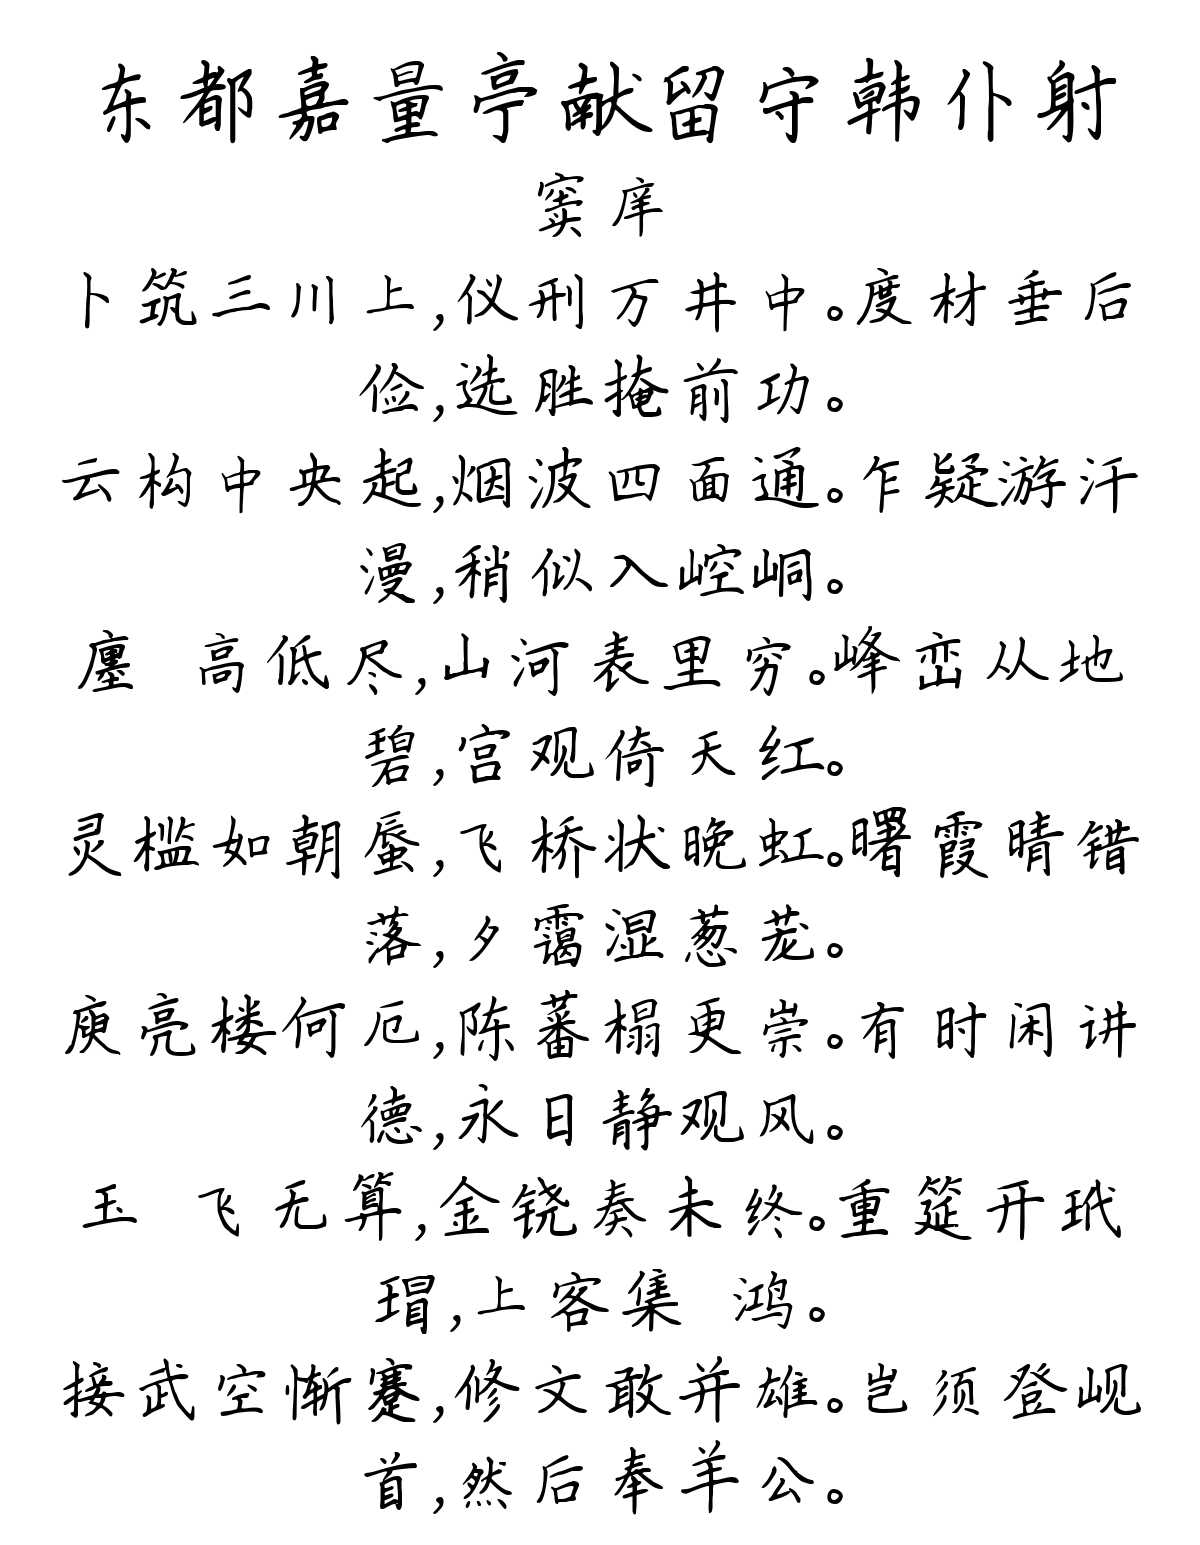 东都嘉量亭献留守韩仆射
窦庠
卜筑三川上,仪刑万井中。度材垂后
俭,选胜掩前功。
云构中央起,烟波四面通。乍疑游汗
漫,稍似入崆峒。
廛 高低尽,山河表里穷。峰峦从地
碧,宫观倚天红。
灵槛如朝蜃,飞桥状晚虹。曙霞晴错
落,夕霭湿葱茏。
庾亮楼何厄,陈蕃榻更崇。有时闲讲
德,永日静观风。
玉 飞无算,金铙奏未终。重筵开玳
瑁,上客集 鸿。
接武空惭蹇,修文敢并雄。岂须登岘
首,然后奉羊公。